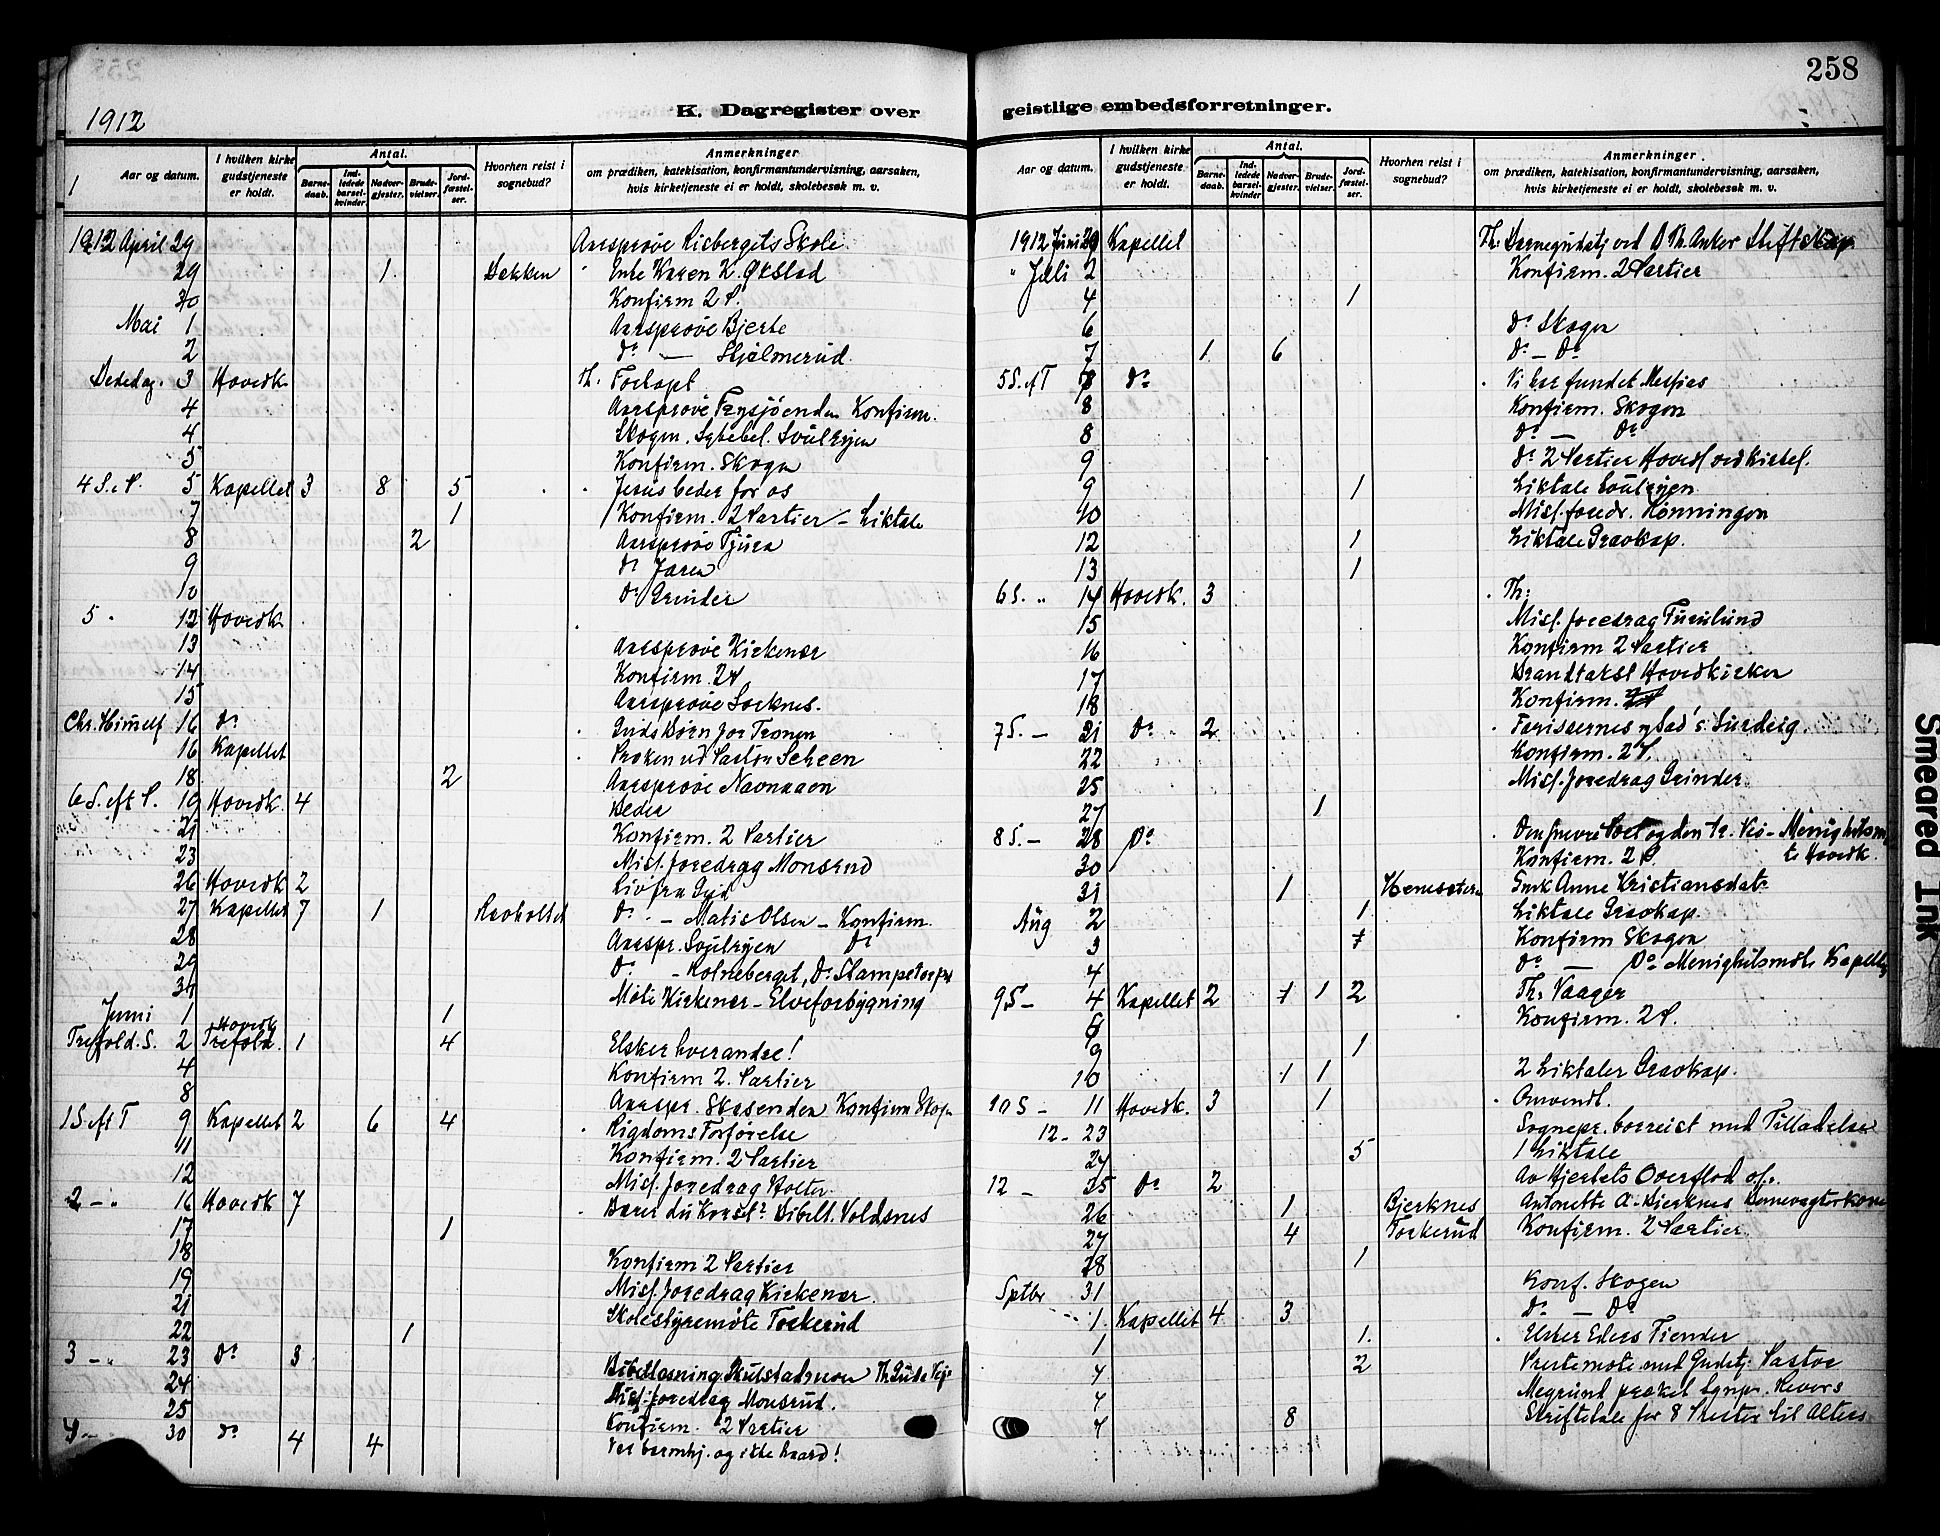 258
1912
K. Dagregister over geistlige embedsforretninger.
Aar og datum. I hvilken kirke gudstjeneste er holdt. Antal. Barnedaab. Indledede barselkvinder. Nadvergjester. Brudevielser. Jordfæstelser. Hvorhen reist i sognebud? Anmerkninger om prædiken, katekisation, konfirmantundervisning, aarsaken, hvis kirketjeneste ei er holdt, skolebesøk m. v.
1912 April 29 Aarsprøve Risbergets Skole
29 1 Bekken Enke Karen K. Økstad
30 Konfirm 2 P.
Mai 1 Aarsprøve Bjerke
2 Do — Hjalmerud
Bededag. 3 Hovedk Th. Fortapt
4 Aarsprøve Frysjøenden Konfirm.
4 Skogen. Svulryen
5 Konfirm. Skogen
4 S. e P. 5 Kapellet 3 8 5 Jesus beder for os
7 1 Konfirm. 2 Partier – Liktale
8 2 Aarsprøve Tjura
9 Do Jaren
10 Do Grinder
5 " 12 Hovedk
13 Aarsprøve Kirkenær
14 Konfirm. 2 P
15 Aarsprøve Sorknes.
Chr. Himmelf 16 Do Guds Børn for Tronen
16 Kapellet Prøken ved Pastor Scheen
18 2 Aarsprøve Navnaaen
6 S. eft P. 19 Hovedk. 4 Beder
21 Konfirm. 2 Partier
23 Mis. foredrag Monsrud
26 Hovedk 2 Liv fra Gud
27 Kapellet 7 1 Ravholtet Do – Matis Olsen – Konfirm.
28 Aarspr. Svulryen Do
29 Do – Holneberget, Do Stampetorpet
31 Møte Kirkenær – Elveforbygning
Juni 1 1
Trefold. S. 2 Hovedk Trefold. 1 4 Elsker hverandre!
4 Konfirm 2. Partier
8 Aarspr. Skasenden Konfirm Skogn
1 S. eft T 9 Kapellet 2 6 4 Rigdoms Forførelse
11 Konfirm. 2 Partier
12 Mis. foredrag Holter.
2 – " 16 Hovedk 7 Bærer du Korset? Bibelt. Voldsnes
17 1
18 Konfirm 2 Partier
19 Mis. foredrag Kirkenær.
21 Skolestyremøte Torkerud
22 1
3 – " 23 Do 3
24 Bibellæsning Skulstadmoen Th. Guds Veje
25 Mis. foredrag Monsrud.
4 – 30 Do 4 4 Konfirm. 2 Partier
Vær barmhj. og ikke haard!
Aar og datum. I hvilken kirke gudstjeneste er holdt. Antal. Barnedaab. Indledede barselkvinder. Nadvergjester. Brudevielser. Jordfæstelser. Hvorhen reist i sognebud? Anmerkninger om prædiken, katekisation, konfirmantundervisning, aarsaken, hvis kirketjeneste ei er holdt, skolebesøk m. v.
1912 Juni 29 Kapellet Th: Barnegudstj ved D Th. Anker Stiftskap
" Juli 2 Konfirm. 2 Partier
4 1
6 Do Skogen
7 1 6 Do – Do
5 S. ef T 7 Do Vi har fundet Messias
8 Konfirm. Skogen
8 Do — Do
9 Do 2 Partier Hoved
9 1 Liktale Svulryen
10 Mis. foredr. Hønningen
12 1 Liktale Gravkap.
13 1
6 S. " 14 Hovedk. 3 Th:
15 Mis. foredrag Furulund
16 Konfirm 2 Partier
17 Brandtakst Hovedkirken
18 Konfirm.
7 S. – 21 Do 2 Farisæernes Surdeig
22 Konfirm. 2 P.
25 Mis. foredrag Grinder
27 1
8 S. – 28 Do Den snevre Port og den tr. Vei – Menighetsm
30 Konfirm. 2 P. te Hovedk.
31 1 Hemsæteren Enk Anne Kristiansdatr
Aug 2 1 Liktale Gravkap.
3 1 Konfirm Skogen
4 Do — Do Menighetsmøte Kapellet
9 S – 4 Kapellet 2 1 1 2 Th: Vaager
6 Konfirm. 2 P.
9 1
10 1 1 2 Liktaler Gravkap.
10 S – 11 Hovedk. 3 1 Omvendt.
12 – 23 Sognepr. borreist med Tilladelse
24 5 1 Liktale
12 – 25 Do 2 Av Hjertets Overflod
26 1 Bjerknes Antonette A. Bjerknes Banevogterkone
27 4 Torkerud Konfirm. 2 Partier
28 1
Sptbr 31 Konf. Skogen
1 Kapellet 4 3 Do — Do
1 1. Efter Eders Tiender
4 2 Prestemøte med Gudstj. Pastor
4 Megrund præket
4 8 Skriftetale for 8 Prester til Alters
Smeared Ink